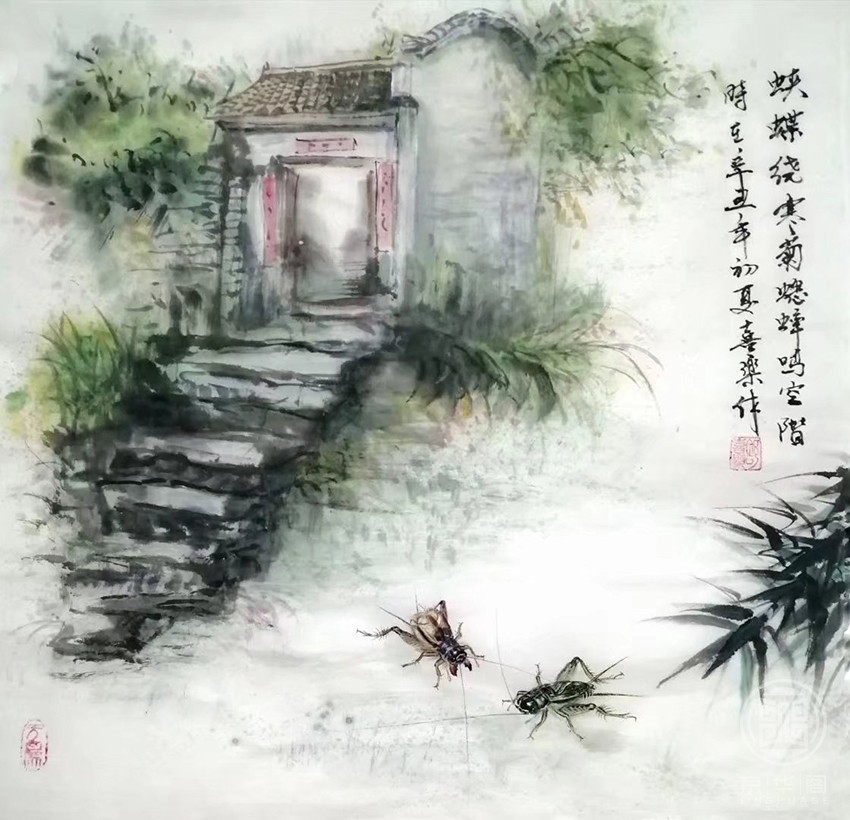 蛱蝶绕寒菊蟋蟀鸣空階
時在辛丑年初夏喜樂作